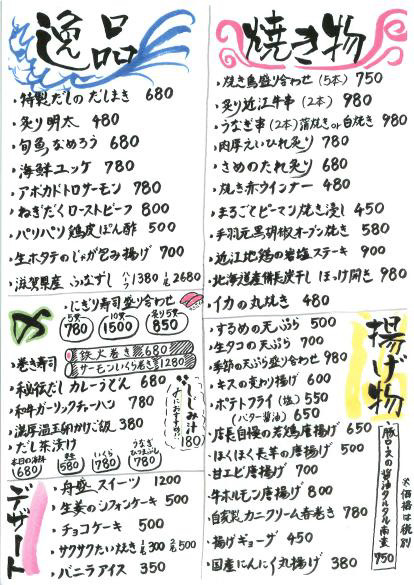 逸品
・特製だしの だしまき 680
・炙り明太 480
・旬魚なめろう 680
・海鮮ユッケ 780
・アボカドトロサーモン 780
・ねぎだくローストビーフ 800
・パリパリ鶏皮ぽん酢 500
・生ホタテのじゃが包み揚げ 700
・滋賀県産 ふなずし ハーフ1380 2680
〆
・にぎり寿司盛り合わせ
5貫 780
10貫 1500
炙り5貫 850
・巻き寿司
鉄火巻き 680
サーモンいくら巻き 1280
・秘伝だし カレーうどん 680
・和牛ガーリックチャーハン 780
・濃厚温玉卵かけご飯 380
・だし茶漬け
本日の海鮮 680
580
いくら 780
うなぎひつまぶし 780
しじみ汁
〆におすすめ!!
180
デザート
・舟盛スイーツ 1200
・生姜のシフォンケーキ 500
・チョコケーキ 500
・サクサクたい焼き 1尾300 2尾500
・バニラアイス 350
焼き物
・焼き鳥盛り合わせ(5本) 750
・炙り近江牛串(2本) 980
・うなぎ串(2本)蒲焼きor白焼き 980
・肉厚えいひれ炙り 780
・さめのたれ炙り 680
・焼き赤ウインナー 480
・まるごとピーマン焼き浸し 450
・手羽元黒胡椒オーブン焼き 580
・近江地鶏の岩塩ステーキ 900
・北海道産備長炭干し ほっけ開き 980
・イカの丸焼き 480
揚げ物
・するめの天ぷら 500
・生タコの天ぷら 700
・季節の天ぷら盛り合わせ 980
・キスの変わり揚げ 600
・ポテトフライ(塩) 550
(バター醤油) 650
・店長自慢の若鶏唐揚げ 650
・ほくほく長芋の唐揚げ 500
・甘エビ唐揚げ 700
・牛ホルモン唐揚げ 800
・自家製カニクリーム春巻き 780
・揚げギョーザ 450
・国産にんにく丸揚げ 380
豚ロースの醤油タルタル南蛮 750
※価格は税別